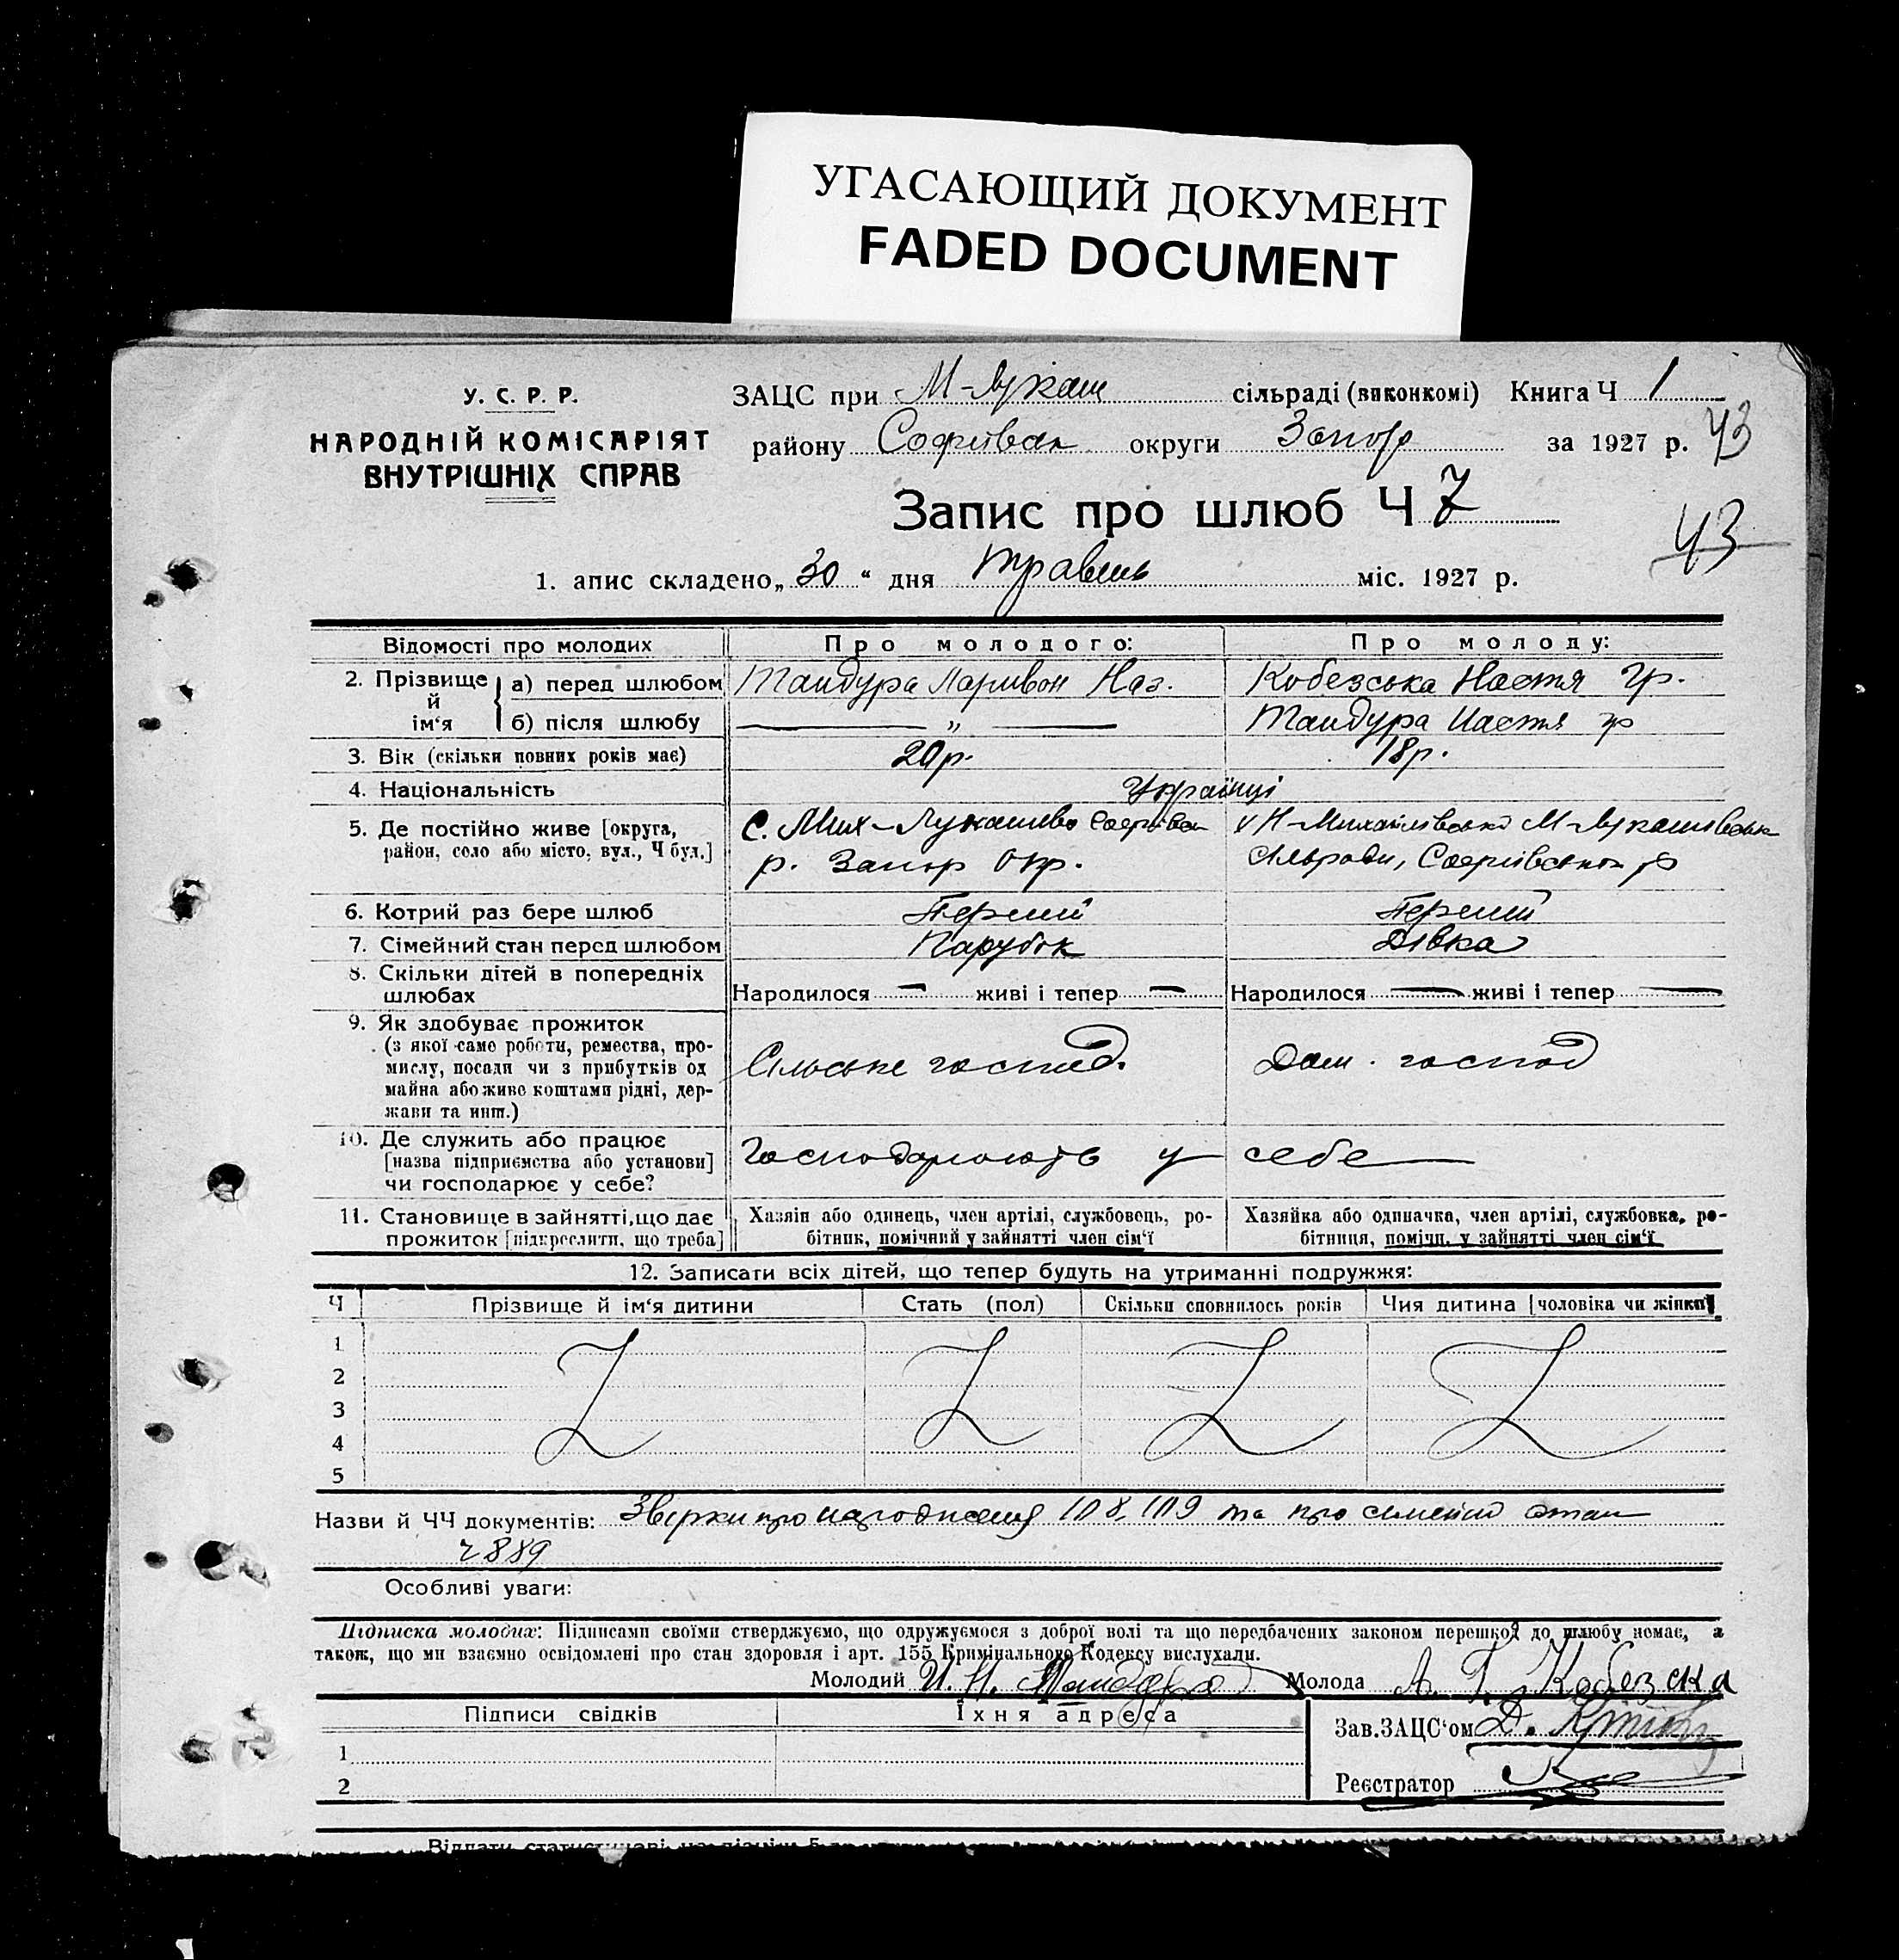 УГАСАЮЩИЙ ДОКУМЕНТ
FADED DOCUMENT
У. С. Р. Р.
НАРОДНІЙ КОМІСАРІЯТ
ВНУТРІШНІХ СПРАВ
ЗАЦС при М-Лукаш сільраді (виконкомі) Книга Ч 1
району Софіївськ округи Запор за 1927 р. 43
Запис про шлюб Ч 7
43
1. апис складено „30“ дня травень міс. 1927 р.
Відомості про молодих Про молодого: Про молоду:
2. Прізвище й ім‘я а) перед шлюбом Тандура Ларивон Наз. Кобезська Настя Гр.
б) після шлюбу — „ — Тандура Настя гр
3. Вік (скільки повних років має) 20р. 18р.
4. Національність Українці
5. Де постійно живе [округа, С. Мих-Лукашево Софіївськ Х Н-Михайлівська М-Лукашівськ
район, село або місто, вул., Ч буд.] р. Запор Окр. сільради, Софіївського р
6. Котрий раз бере шлюб Перший Перший
7. Сімейний стан перед шлюбом Парубок Дівка
8. Скільки дітей в попередніх
шлюбах Народилося — живі і тепер — Народилося — живі і тепер —
9. Як здобуває прожиток
(з якої саме роботи, ремества, про-
мислу, посади чи з прибутків од Сільське господ. Дом. господ
майна або живе коштами рідні, дер-
жави та инш.)
10. Де служить або працює
[назва підприємства або установи] Господарюють у себе
чи господарює у себе?
11. Становище в зайнятті, що дає Хазяін або одинець, член артілі, службовець, ро- Хазяйка або одиначка, член артілі, службовка, ро-
прожиток [підкреслити, що треба] бітник, помічний у зайнятті член сім‘ї бітниця, помічн. у зайнятті член сім‘ї
12. Записати всіх дітей, що тепер будуть на утриманні подружжя:
Ч Прізвище й ім‘я дитини Стать (пол) Скільки сповнилось років Чия дитина [чоловіка чи жінки]
1
2
3
4
5
Назви й ЧЧ документів: Звірки про народження 108, 109 та про сімейний стан
ч 889
Особливі уваги:
Підписка молодих: Підписами своїми стверджуємо, що одружуємося з доброї волі та що передбачених законом перешкод до шлюбу немає, а
також, що ми взаємно освідомлені про стан здоровля і арт. 155 Кримінального Кодексу вислухали.
Молодий И. Н. Тандура Молода А. Г. Кобезска
Підписи свідків Їхня адреса
Зав. ЗАЦС‘ом Д.
1
Реєстратор
2